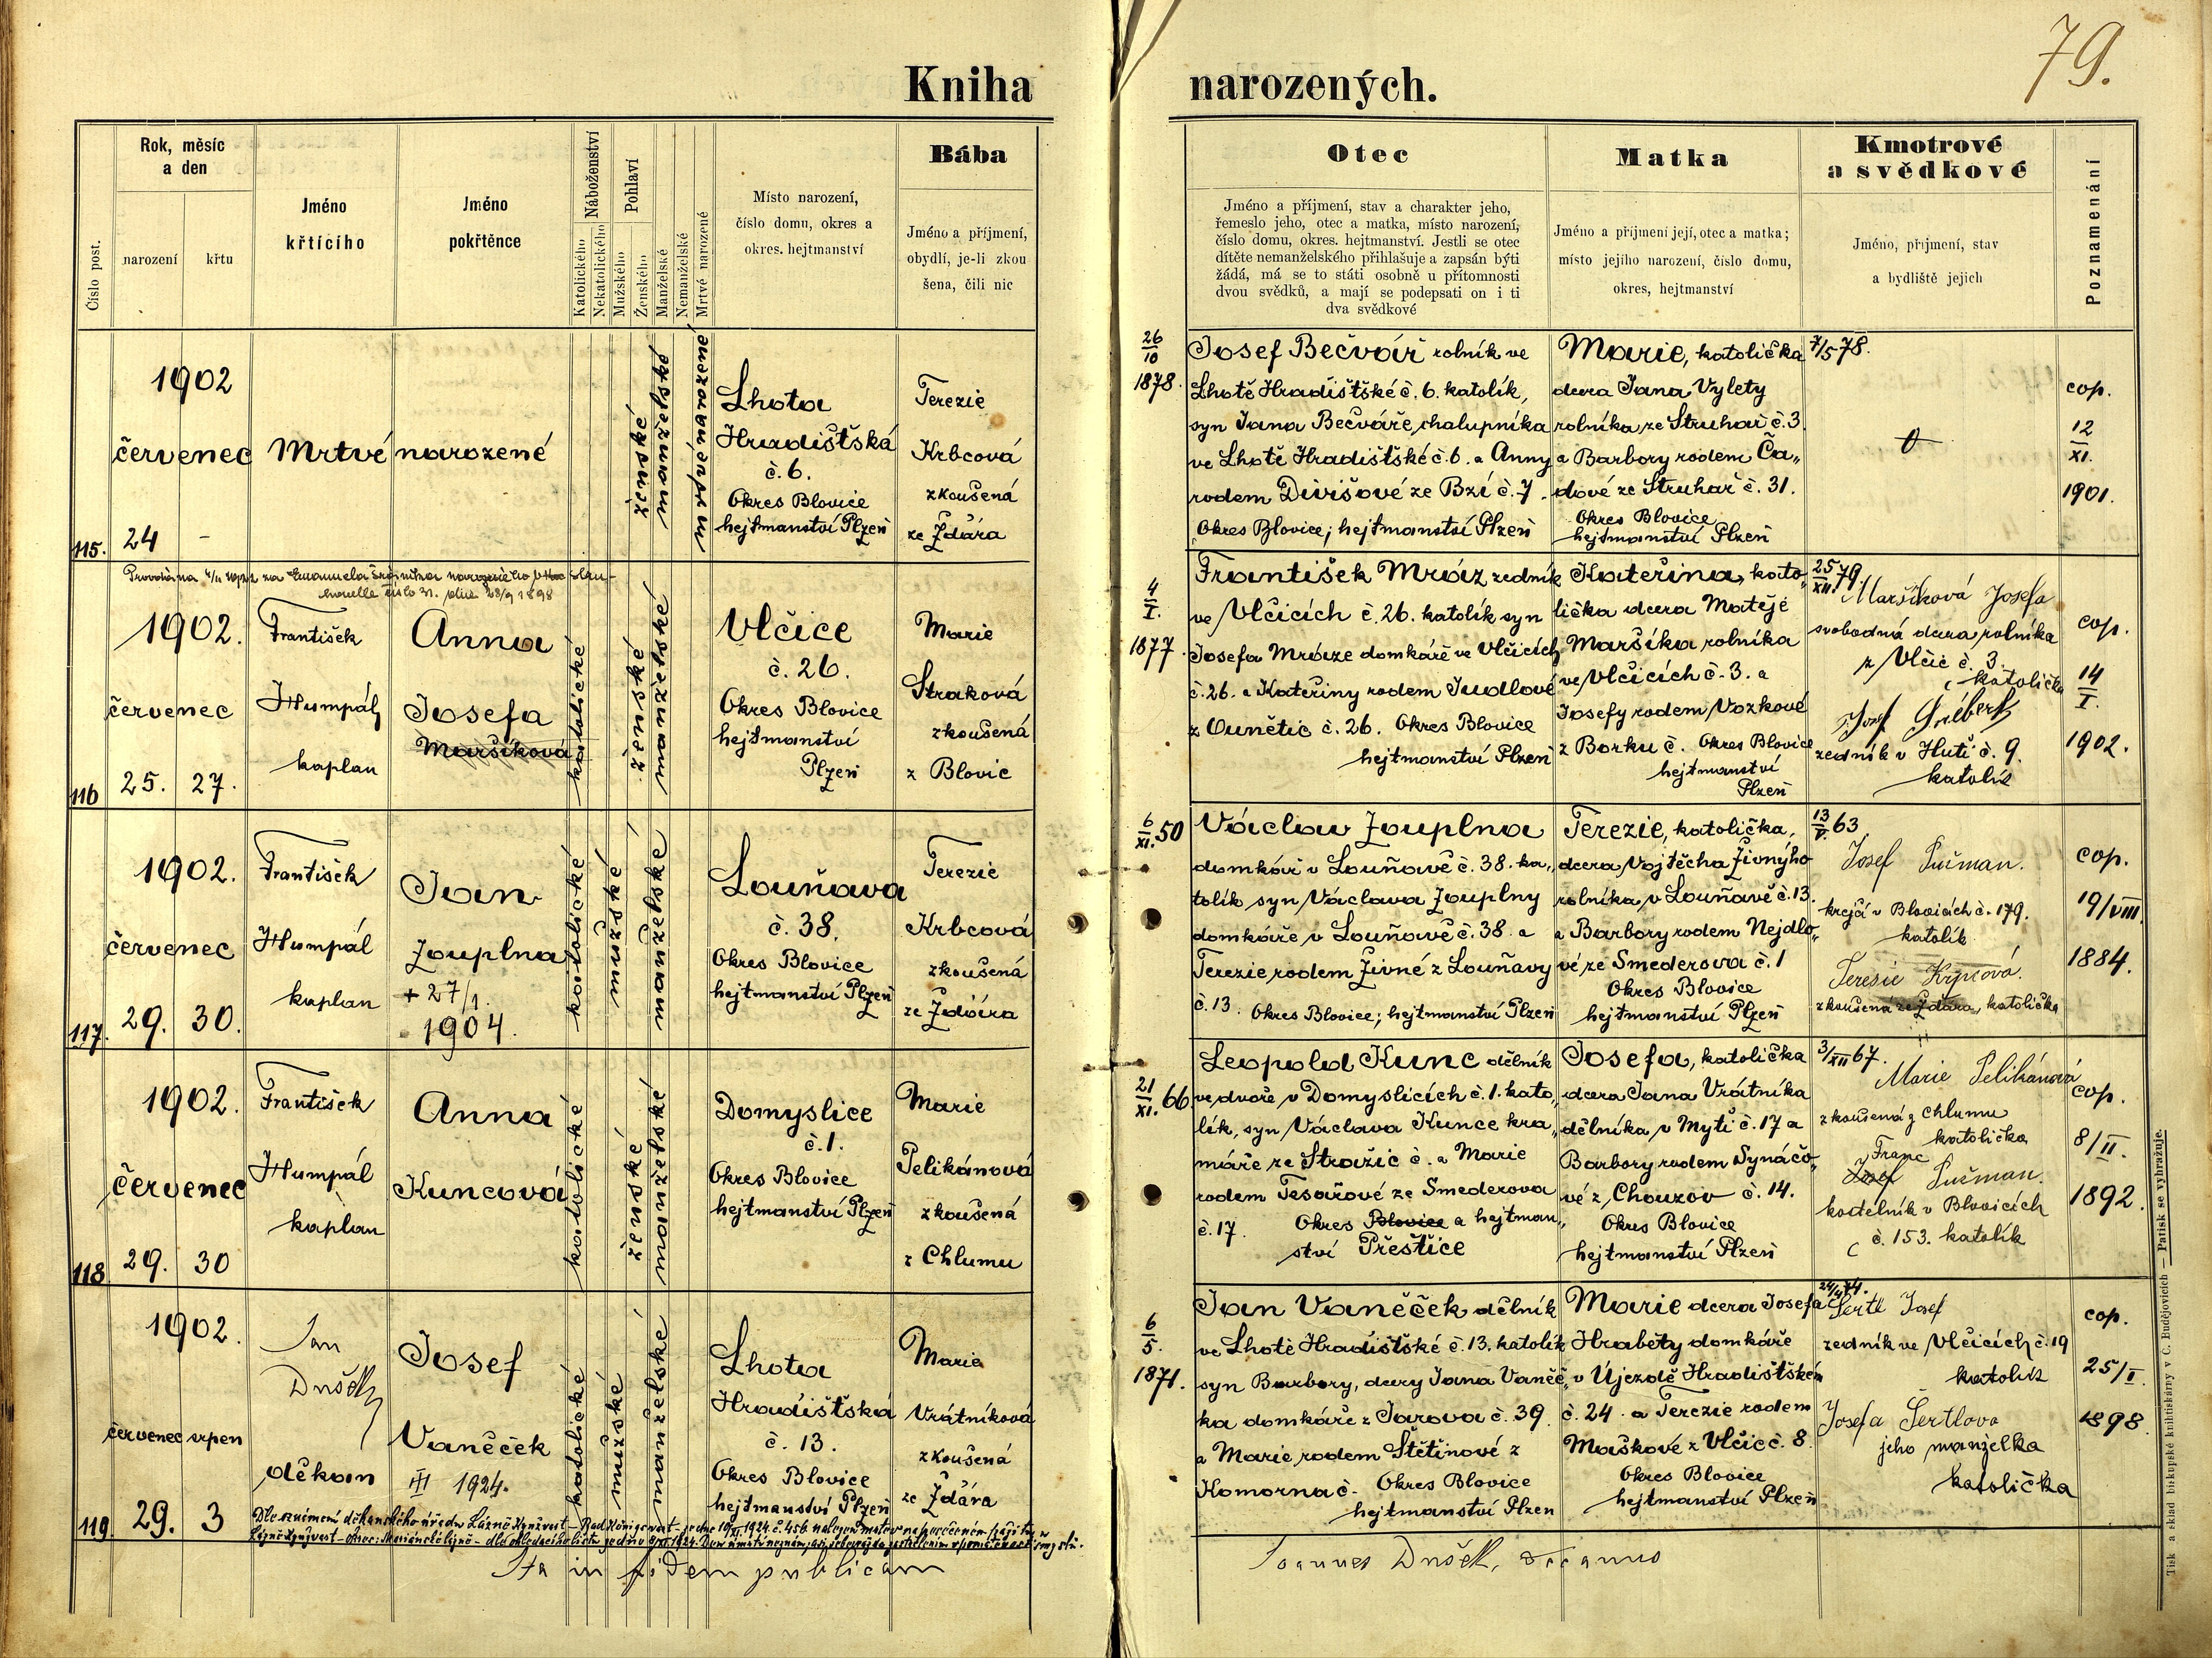 79.
Kniha narozených.
Číslo post.
Rok, měsíc
a den
narození
křtu
Jméno
křtícího
Jméno
pokřtěnce
Náboženství
Katolického
Nekatolického
Pohlaví
Mužského
Ženského
Manželské
Nemanželské
Mrtvé narozené
Místo narození,
číslo domu, okres a
okres. hejtmanství
Bába
Jméno a příjmení,
obydlí, je-li zkou
šena, čili nic
Otec
Jméno a příjmení, stav a charakter jeho,
řemeslo jeho, otec a matka, místo narození,
číslo domu, okres. hejtmanství. Jestli se otec
dítěte nemanželského přihlašuje a zapsán býti
žádá, má se to státi osobně u přítomnosti
dvou svědků, a mají se podepsati on i ti
dva svědkové
Matka
Jméno a příjmení její, otec a matka;
místo jejího narození, číslo domu,
okres, hejtmanství
Kmotrové
a svědkové
Jméno, příjmení, stav
a bydliště jejich
Poznamenání
115.
1902
červenec
24 -
Mrtvé narozené
ženské
manželské
mrtvé narozené
Lhota
Hradištská
č. 6.
Okres Blovice
hejtmanství Plzeň
Terezie
Krbcová
zkoušená
ze Ždára
26
10
1878.
Josef Bečvář rolník ve
Lhotě Hradištské č. 6. katolík,
syn Jana Bečváře, chalupníka
ve Lhotě Hradištské č. 6. a Anny
rodem Divišové ze Bzí č. 7.
Okres Blovice; hejtmanství Plzeň
Marie, katolička
dcera Jana Vylety
rolníka ze Struhař č. 3.
a Barbory rodem Ča„
dové ze Struhař č. 31.
Okres Blovice
hejtmanství Plzeň
7/5 78.
cop.
12
XI.
1901.
116
1902.
červenec
25. 27.
František
Humpál
kaplan
Anna
Josefa
Maršíková
katolické
ženské
manželské
Vlčice
č. 26.
Okres Blovice
hejtmanství
Plzeň
Marie
Straková
zkoušená
z Blovic
4
I.
1877.
František Mráz zedník
ve Vlčicích č. 26. katolík syn
Josefa Mráze domkáře ve Vlčicích
č. 26. a Kateřiny rodem Judlové
z Ounětic č. 26. Okres Blovice
hejtmanství Plzeň
Kateřina, kato„
lička dcera Matěje
Maršíka rolníka
ve Vlčicích č. 3. a
Josefy rodem Vozkové
z Borku č. Okres Blovice
hejtmanství
Plzeň
25
XII. 79.
Maršíková Josefa
svobodná dcera rolníka
z Vlčic č. 3.
katolička
Josef
zedník v Huti č. 9.
katolík
cop.
14
I.
1902.
117.
1902.
červenec
29. 30.
František
Humpál
kaplan
Jan
Zouplna
+ 27/1.
1904.
katolické
mužské
manželské
Louňava
č. 38.
Okres Blovice
hejtmanství Plzeň
Terezie
Krbcová
zkoušená
ze Ždára
6
XI. 50
Václav Zouplna
domkář v Louňavě č. 38. ka„
tolík syn Václava Zouplny
domkáře v Louňavě č. 38. a
Terezie rodem Živné z Louňavy
č. 13. Okres Blovice; hejtmanství Plzeň
Terezie, katolička,
dcera Vojtěcha Živného
rolníka v Louňavě č. 13.
a Barbory rodem Nejdlo„
vé ze Smederova č. 1
Okres Blovice
hejtmanství Plzeň
13
V. 63
Josef Sučman.
krejčí v Blovicích č. 179.
katolík
Teresie Krpcová.
zkoušená ze Ždára, katolička
cop.
19/VIII.
1884.
118
1902.
červenec
29. 30
František
Humpál
kaplan
Anna
Kuncová
katolické
ženské
manželské
Domyslice
č. 1.
Okres Blovice
hejtmanství Plzeň
Marie
Pelikánová
zkoušená
z Chlumu
21
XI. 66
Leopold Kunc dělník
ve dvoře v Domyslicích č. 1. kato„
lík, syn Václava Kunce kra„
máře ze Stražic č. a Marie
rodem Tesařové ze Smederova
č. 17 Okres Blovice a hejtman„
ství Přeštice
Josefa, katolička
dcera Jana Vrátníka
dělníka v Mýti č. 17 a
Barbory rodem Synáčo„
vé z Chouzov č. 14.
Okres Blovice
hejtmanství Plzeň
3/XII 67.
Marie Pelikánová
zkoušená z Chlumu
katolička
Franc
Josef Sučman.
kostelník v Blovicích
č. 153. katolík
cop.
8/II.
1892.
119.
1902.
červenec srpen
29. 3
Jan
Dušek
děkan
Josef
Vaněček
III 1924.
katolické
mužské
manželské
Lhota
Hradištská
č. 13.
Okres Blovice
hejtmanství Plzeň
Marie
Vrátníková
zkoušená
ze Ždára
6
5.
1871.
Jan Vaněček dělník
ve Lhotě Hradištské č. 13. katolík
syn Barbory, dcery Jana Vaněč„
ka domkáře z Jarova č. 39.
a Marie rodem Štětinové z
Komorna č. Okres Blovice
hejtmanství Plzeň
Marie dcera Josefa
Hraběty domkáře
v Újezdě Hradištském
č. 24. a Terezie rodem
Maškové z Vlčic č. 8.
Okres Blovice
hejtmanství Plzeň
Šertl Josef
zedník ve Vlčicích č. 19
katolík
Josefa Šertlova
jeho manželka
katolička
cop.
25/I.
1898
Ita in fidem publicam
Joannes Dušek, decanus
Tisk a sklad biskupské knihtiskárny v Č. Budějovicích — Patisk se vyhražuje.